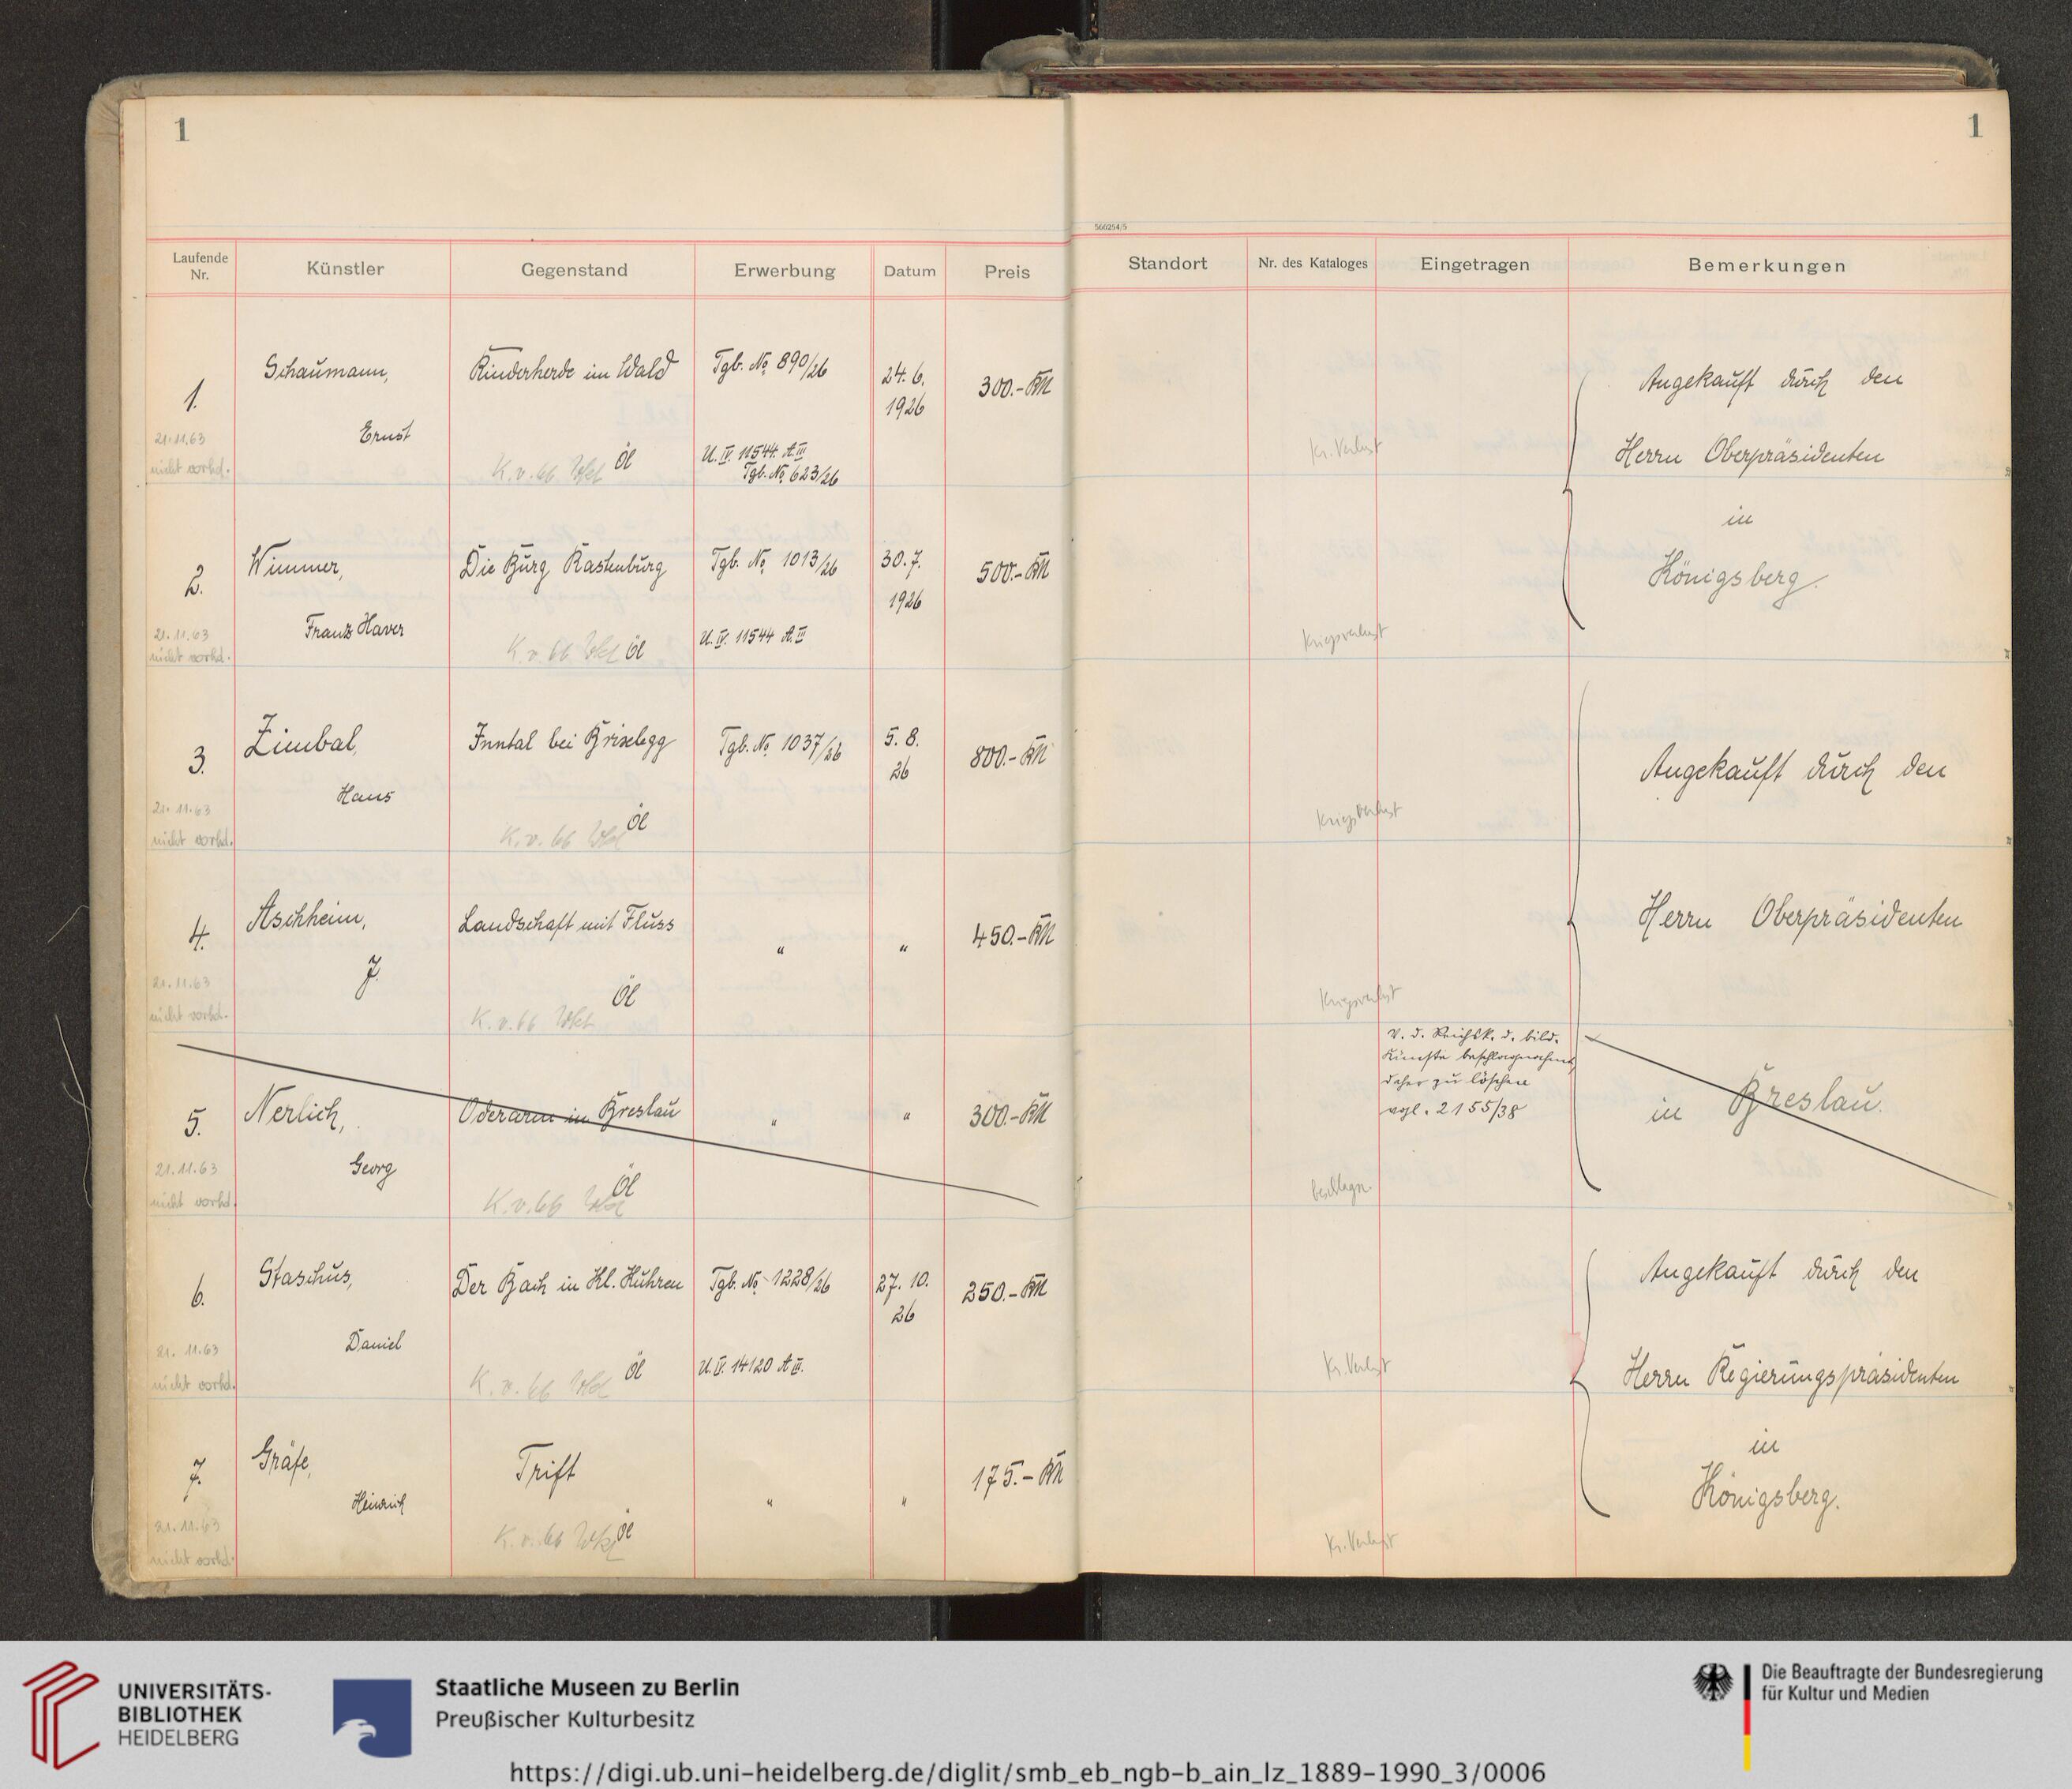 1
1
566254/5
Laufende Nr. Künstler Gegenstand Erwerbung Datum Preis Standort Nr. des Kataloges Eingetragen Bemerkungen
1.
21.11.63
nicht vorhd.
Schaumann,
Ernst
Rinderherde im Wald
Öl
K.v. 66
Tgb. No 890/26
U. IV. 11544. A. III
Tgb. No 623/26
24. 6.
1926
300.- RM
Kr. Verlust
Angekauft durch den
Herrn Oberpräsidenten
in
Königsberg.
2.
21.11.63
nicht vorhd.
Wimmer,
Franz Xaver
Die Burg Rastenburg
K.v. 66 Öl
Tgb. No 1013/26
U. IV. 11544 A. III
30. 7.
1926
500.- RM
Kriegsverlust
3.
21.11.63
nicht vorhd.
Zimbal,
Hans
Inntal bei Brixlegg
Öl
K.v. 66
Tgb. No 1037/26
5. 8.
26
800.- RM
Kriegsverlust
Angekauft durch den
Herrn Oberpräsidenten
in Breslau.
4.
21.11.63
nicht vorhd.
Aschheim,
J.
Landschaft mit Fluss
Öl
K.v. 66
"
"
450.- RM
Kriegsverlust
5.
21.11.63
nicht vorhd.
Nerlich,
Georg
Oderarm in Breslau
Öl
K.v. 66
"
"
300.- RM
beschlagn.
V. d. Reichsk. d. bild.
Künste beschlagnahmt,
daher zu löschen
vgl. 2155/38
6.
21.11.63
nicht vorhd.
Staschus,
Daniel
Der Bach in Kl. Kuhren
Öl
K.v. 66
Tgb. No 1228/26
U. IV. 14120 A III.
27. 10.
26
250.- RM
Kr. Verlust
Angekauft durch den
Herrn Regierungspräsidenten
in
Königsberg.
7.
21.11.63
nicht vorhd.
Gräfe,
Heinrich
Trift
Öl
K.v. 66
"
"
175.- RM
Kr. Verlust
UNIVERSITÄTS-
BIBLIOTHEK
HEIDELBERG
Staatliche Museen zu Berlin
Preußischer Kulturbesitz
Die Beauftragte der Bundesregierung
für Kultur und Medien
https://digi.ub.uni-heidelberg.de/diglit/smb_eb_ngb-b_ain_lz_1889-1990_3/0006